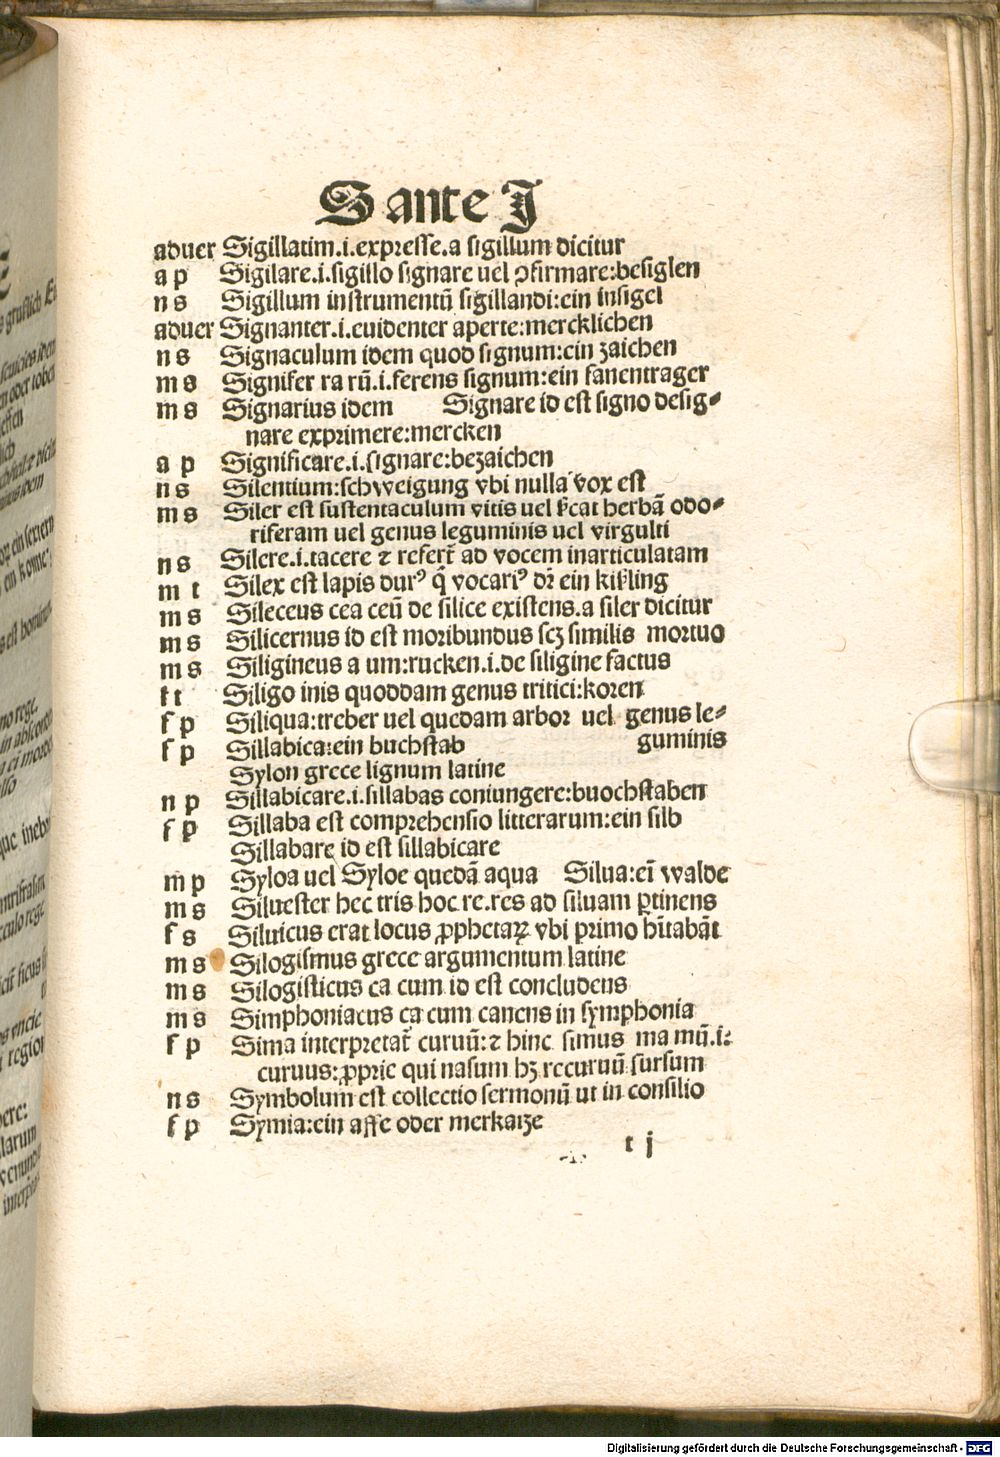 S ante J
aduer Sigillatim.i.expresse.a sigillum dicitur
a p Sigilare.i.sigillo signare uel ꝯfirmare:besiglen
n s Sigillum instrumentū sigillandi:ein insigel
aduer Signanter.i.euidenter aperte:mercklichen
n s Signaculum idem quod signum:ein zaichen
m s Signifer ra rū.i.ferens signum:ein fanentrager
m s Signarius idem Signare id est signo desig⸗
nare exprimere:mercken
a p Significare.i.signare:bezaichen
n s Silentium:schweigung vbi nulla vox est
m s Siler est sustentaculum vitis uel herbā odo⸗
riferam uel genus leguminis uel virgulti
n s Silere.i.tacere ⁊ refert̄ ad vocem inarticulatam
m t Silex est lapis durꝰ q̄ vocariꝰ dr̄ ein kißling
m s Sileceus cea ceū de silice existens.a siler dicitur
m s Silicernus id est moribundus scꝫ similis mortuo
m s Siligineus a um:rucken.i.de siligine factus
f t Siligo inis quoddam genus tritici:koren
f p Siliqua:treber uel quedam arbor uel genus le⸗
f p Sillabica:ein buchstab guminis
Sylon grece lignum latine
n p Sillabicare.i.sillabas coniungere:buochstaben
f p Sillaba est comprehensio litterarum:ein silb
Sillabare id est sillabicare
m p Syloa uel Syloe quedā aqua Silua:eī walde
m s Siluester hec tris hoc re.res ad siluam ꝑtinens
f s Siluicus erat locus ꝓphetaꝝ vbi primo hītabāt
m s Silogismus grece argumentum latine
m s Silogisticus ca cum id est concludens
m s Simphoniacus ca cum canens in symphonia
f p Sima interpretat̄ curuū:⁊ hinc simus ma mū.i:
curuus:ꝓprie qui nasum hꝫ recuruū sursum
n s Symbolum est collectio sermonū ut in consilio
f p Symia:ein affe oder merkatze
t j
Digitalisierung gefördert durch die Deutsche Forschungsgemeinschaft - DFG